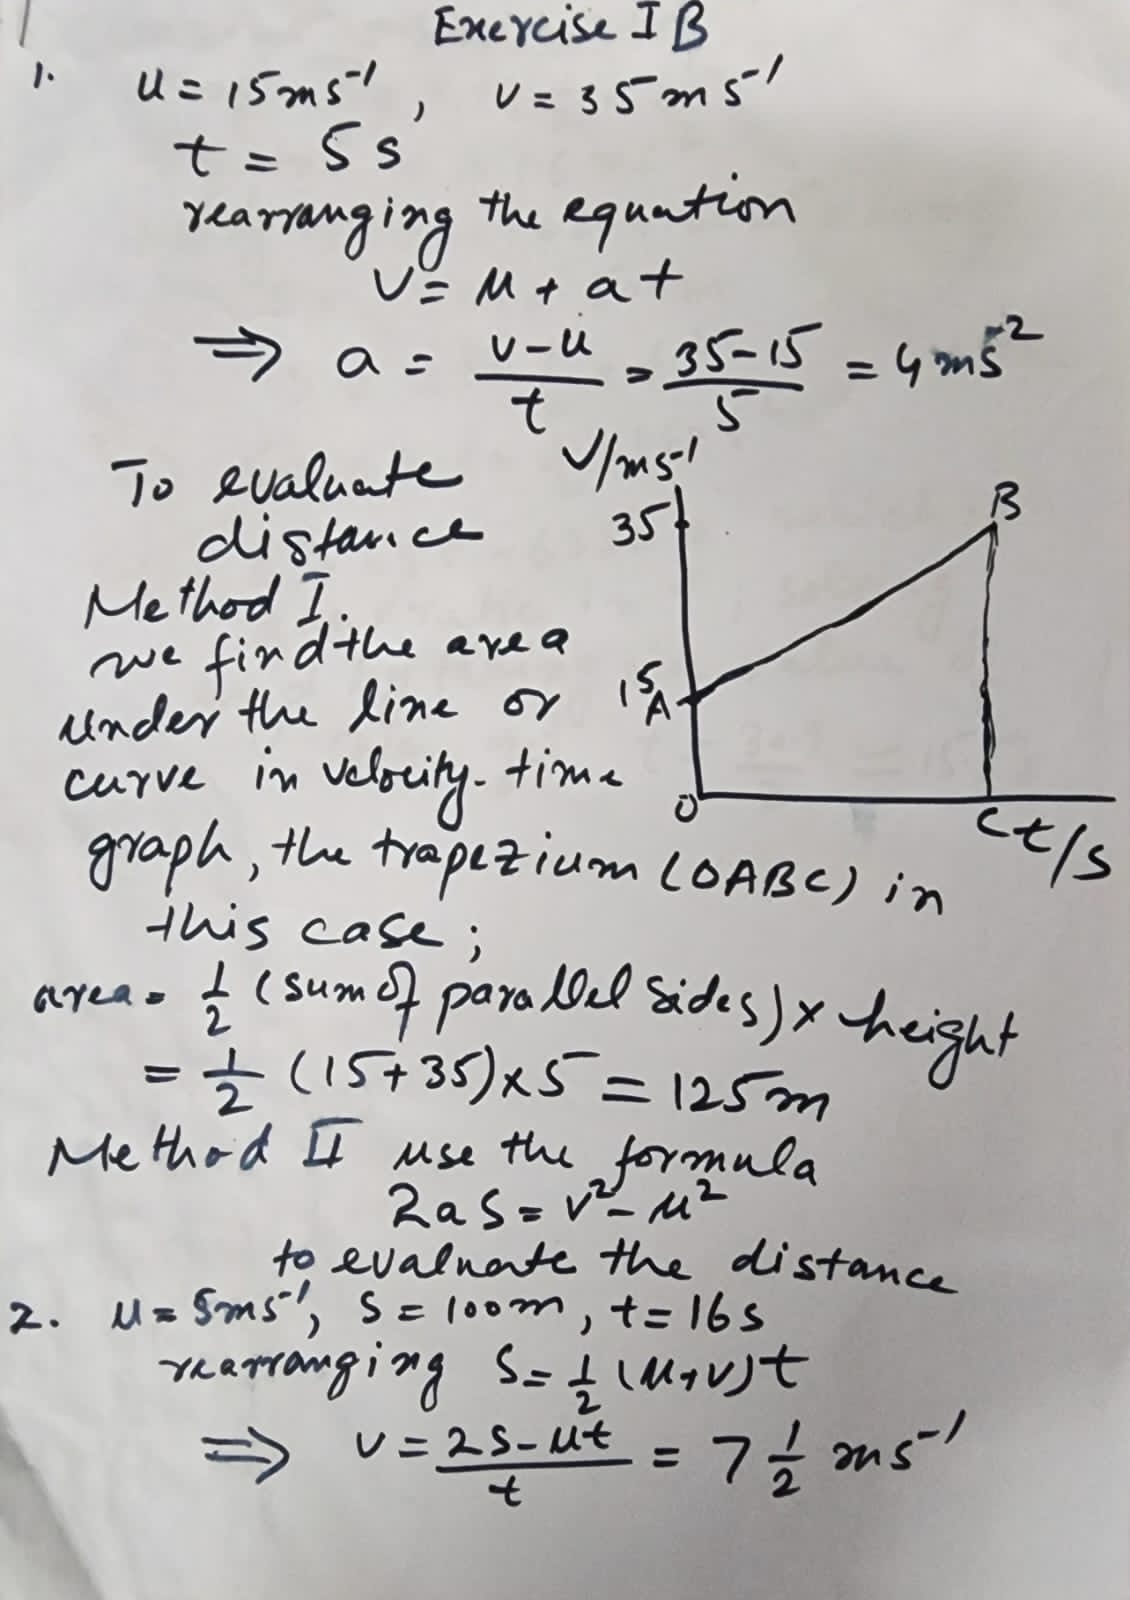 Exercise I B
1. u = 15 ms⁻¹, v = 35 m s⁻¹
t = 5 s
rearranging the equation
v = u + at
⟹ a = (v-u)/t = (35-15)/5 = 4 ms⁻²
To evaluate
distance
Method I.
we find the area
under the line or
curve in velocity-time
graph, the trapezium (OABC) in
this case;
V/ms⁻¹
35
B
15
A
O
C
t/s
area = 1/2 (sum of parallel sides) × height
= 1/2 (15+35)×5 = 125m
Method II use the formula
2as = v² - u²
to evaluate the distance
2. u = 5ms⁻¹, s = 100m, t = 16s
rearranging s = 1/2 (u+v)t
⟹ v = (2s-ut)/t = 7 1/2 ms⁻¹